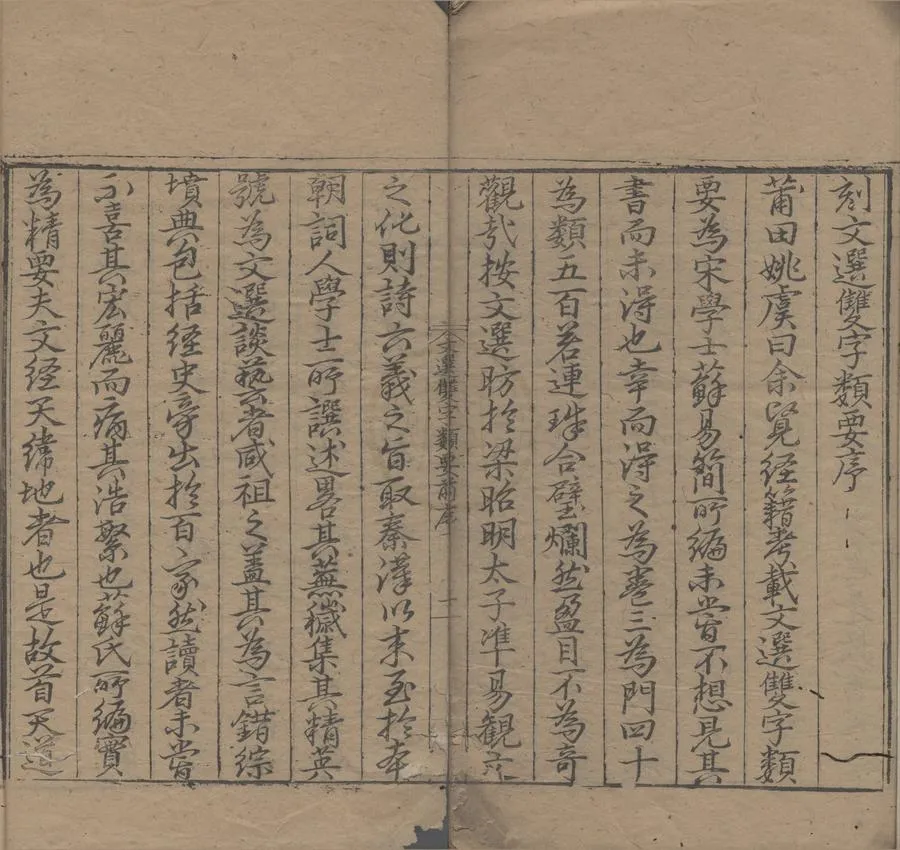 刻文選雙字類要序
莆田姚虞曰余覽經籍考載文選雙字類
要為宋學士蘇易簡所編未嘗不想見其
書而未得也幸而得之為卷三為門四十
為類五百若連珠合璧爛然盈目不為奇
觀哉按文選昉於梁昭明太子準易觀
文選雙字類要前序
之化則詩六義之旨取秦漢以來至於本
朝詞人學士所譔述畧其蕪穢集其精英
號為文選談藝者咸祖之蓋其為言錯綜
墳典包括經史旁出於百家然讀者未嘗
不喜其宏麗而病其浩繁也蘇氏所編實
為精要夫文經天緯地者也是故首天道